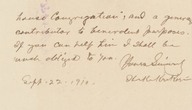 house Congregation; and a generous
contributor to benevolent purposes.
If you can help him I shall be
much obliged to you
Yours Sincerely
Sept. 22. 1910.